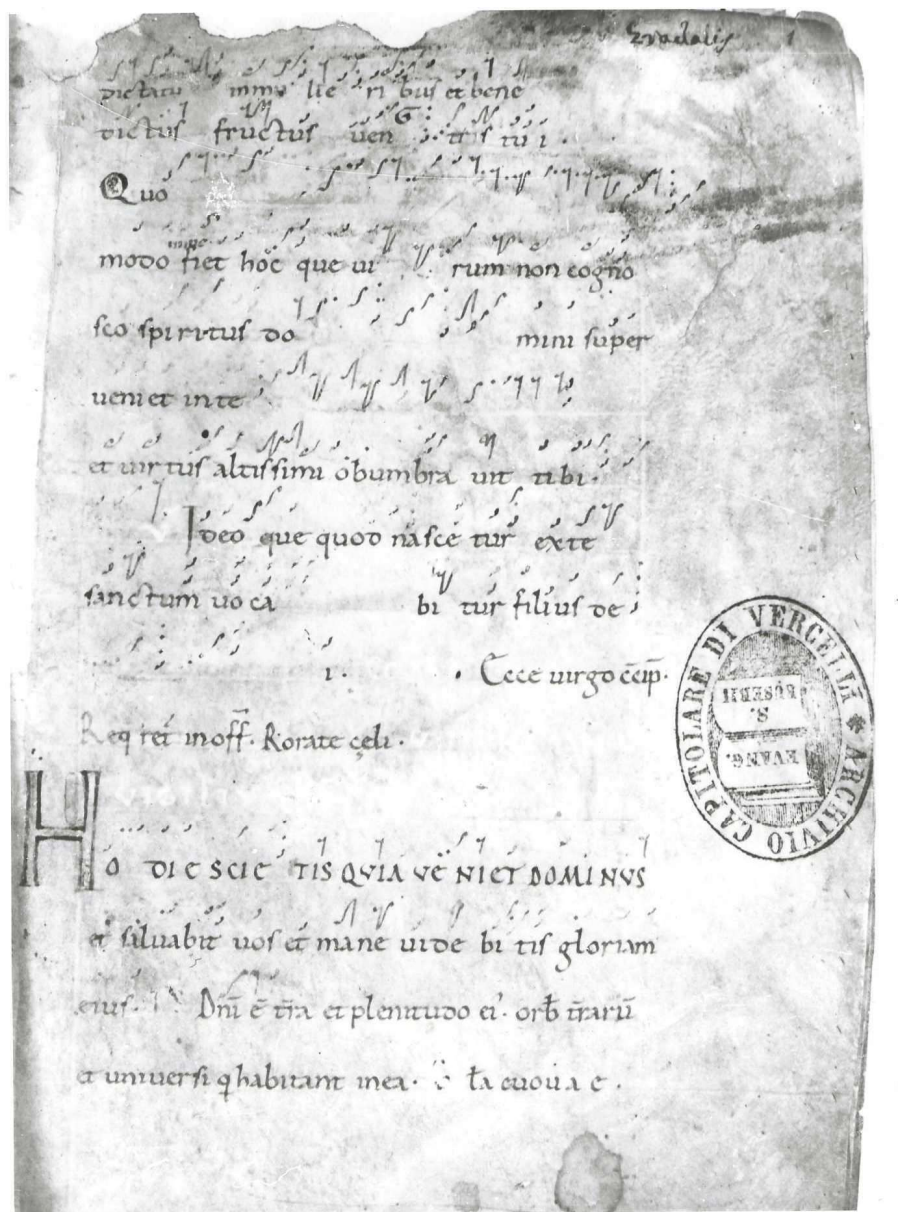 Gradalis 1
dictatu inmu lie ri bus et bene
dictus fructus uen tris tu i.
Quo
modo fiet hoc que ui rum non cogno
sco spiritus do mini super
ueniet in te
et uirtus altissimi obumbra uit tibi.
Ideo que quod nasce tur exte
sanctum uo ca bi tur filius de
i. Ecce uirgo c̄cip̄.
Req ret̄ in off̄. Rorate cęli.
HO DIE SCIE TIS QVIA VE NIET DOMINVS
et saluabit uos et mane uide bi tis gloriam
eius. Dn̄i ē t̄ra et plenitudo ei'. orb̄ t̄rarū
et uniuersi q̄ habitant in ea. euouae.
ARCHIVIO CAPITOLARE DI VERCELLI
S. EUSEBII
EVANG.